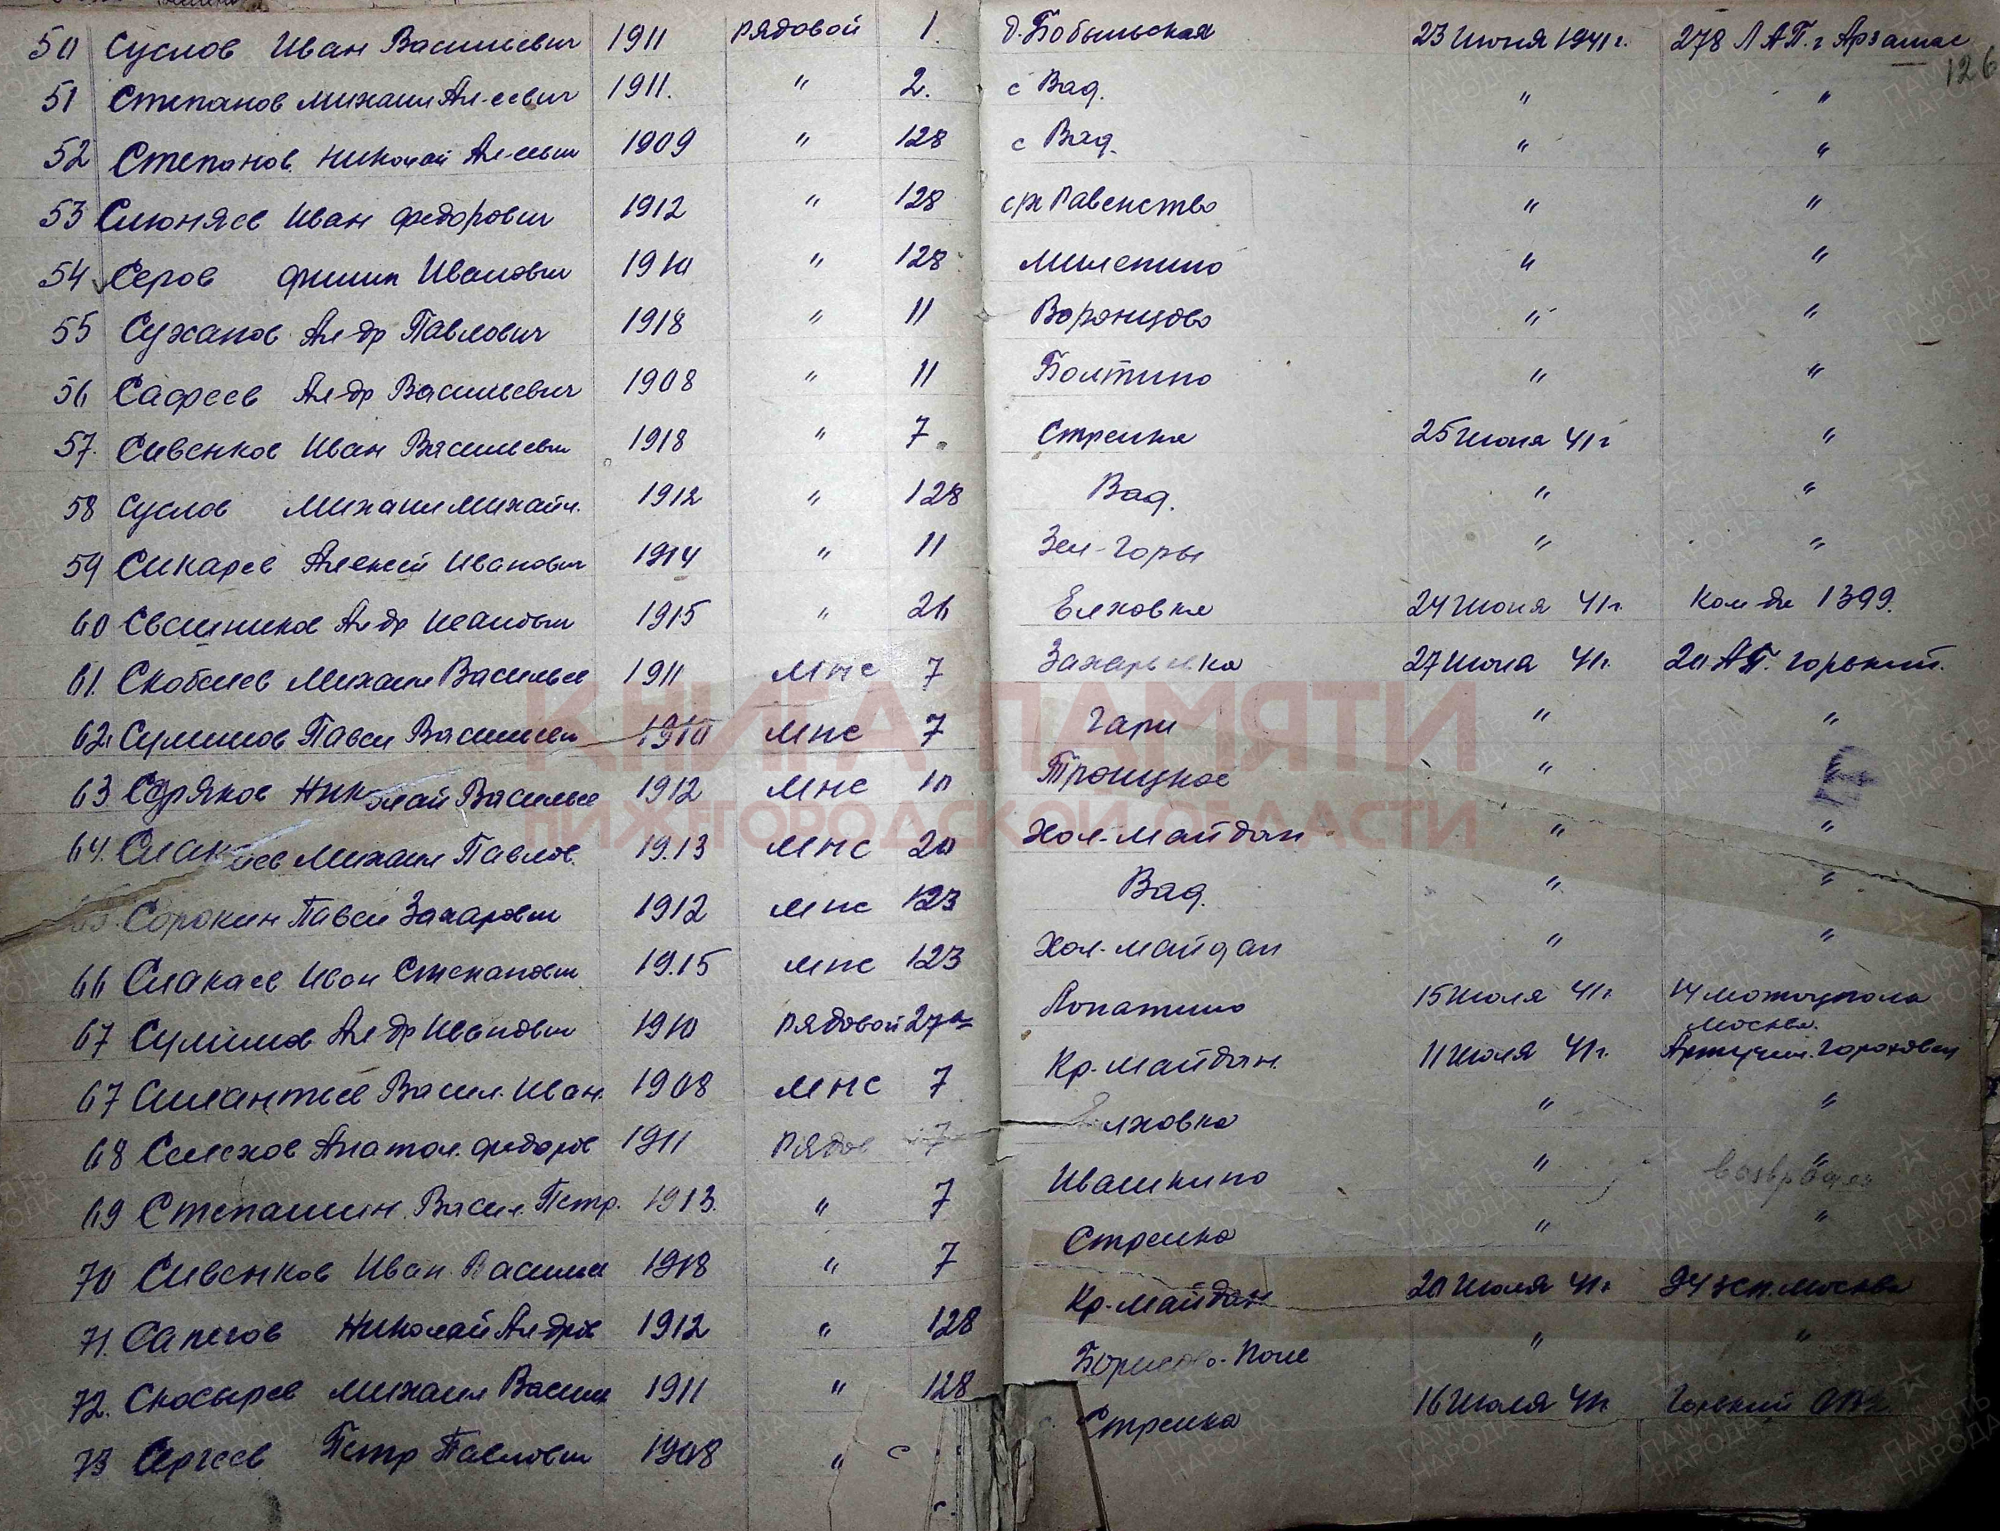 50 Суслов Иван Васильевич 1911 рядовой 1. д. Бобыльская 23 июня 1941 г. 278 ЛАП. г Арзамас
126
51 Степанов Михаил Ал-еевич 1911. " 2. с Вад. " "
52 Степанов Николай Ал-евич 1909 " 128 с Вад. " "
53 Слюняев Иван Федорович 1912 " 128 с/х Равенство " "
54 Серов Филип Иванович 1910 " 128 Милепино " "
55 Суханов Ал-др Павлович 1918 " 11 Воронцово " "
56 Сафеев Ал-др Васильевич 1908 " 11 Болтино " "
57. Сивенков Иван Васильевич 1918 " 7. Стрелка 25 июня 41 г "
58 Суслов Михаил Михайл. 1912 " 128 Вад. " "
59 Сикарев Алексей Иванович 1914 " 11 Зел-Горы " "
60 Ал-др 1915 " 20 Елховка 24 июня 41 г. 1399.
61. Скобелев Михаил Василье 1911 МНС 7 27 июня 41 г. 20 АП. Горький.
62. Сумилов Павел 1910 МНС 7 Гари " "
63 Николай Василье 1912 МНС 10 Троицкое " "
64. Михаил Павлов. 1913 МНС 20 Хол-Майдан " "
65. Сорокин Павел Захарович 1912 МНС 123 Вад. " "
66 Слакаев Иван Степанович 1915 МНС 123 Хол-Майдан " "
67 Сумилов Ал-др Иванович 1910 рядовой 27а Лопатино 15 июля 41 г. 14 мотоцполк
Москва.
67 Силантьев Васил. Иван. 1908 МНС 7 Кр-Майдан. 11 июля 41 г.
68 Анатол. Федоров 1911 рядов 7 Елховка " "
69 Степашин Васил. Петр. 1913. " 7 Ивашкино " "
70 Сивенков Иван Василье 1918 " 7 Стрелка " "
71. Сапегов Николай Ал-дров 1912 " 128 Кр-Майдан 20 июля 41 г Москва
72. Скосырев Михаил Васил 1911 " 128 Борисово-Поле " "
73 Сергеев Петр Павлович 1908 " Стрелка 16 июля 41 г
КНИГА ПАМЯТИ
НИЖЕГОРОДСКОЙ ОБЛАСТИ
ПАМЯТЬ
НАРОДА